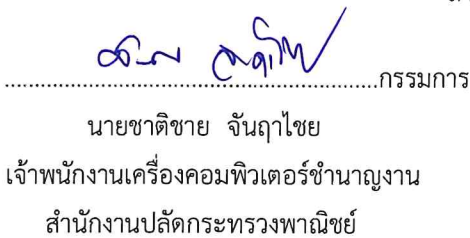 กรรมการ
นายชาติชาย จันฤาไชย
เจ้าพนักงานเครื่องคอมพิวเตอร์ชำนาญงาน
สำนักงานปลัดกระทรวงพาณิชย์